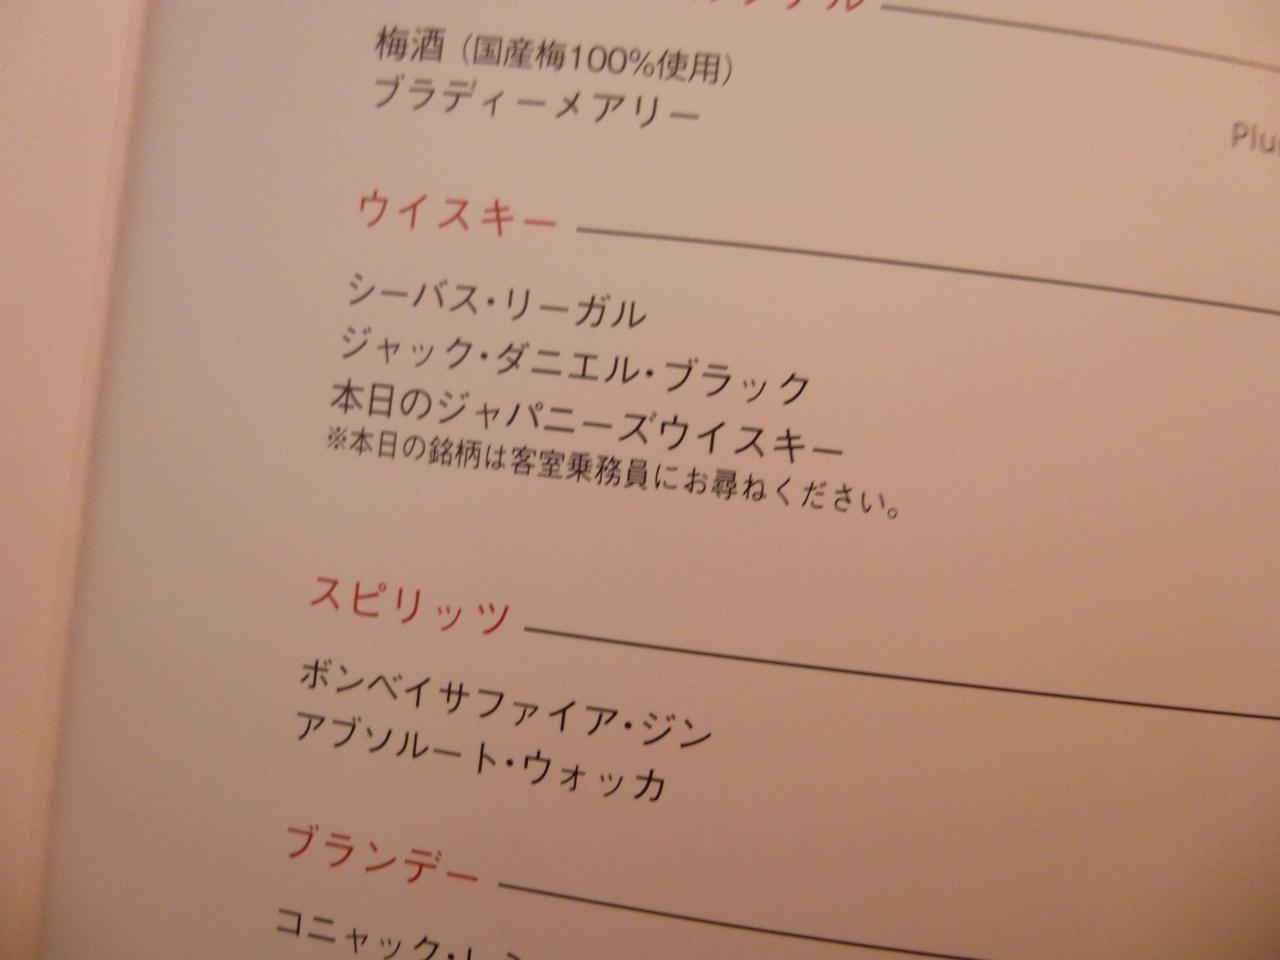 梅酒（国産梅100%使用）
ブラディーメアリー
Plu
ウイスキー
シーバス・リーガル
ジャック・ダニエル・ブラック
本日のジャパニーズウイスキー
※本日の銘柄は客室乗務員にお尋ねください。
スピリッツ
ボンベイサファイア・ジン
アブソルート・ウォッカ
ブランデー
コニャック・